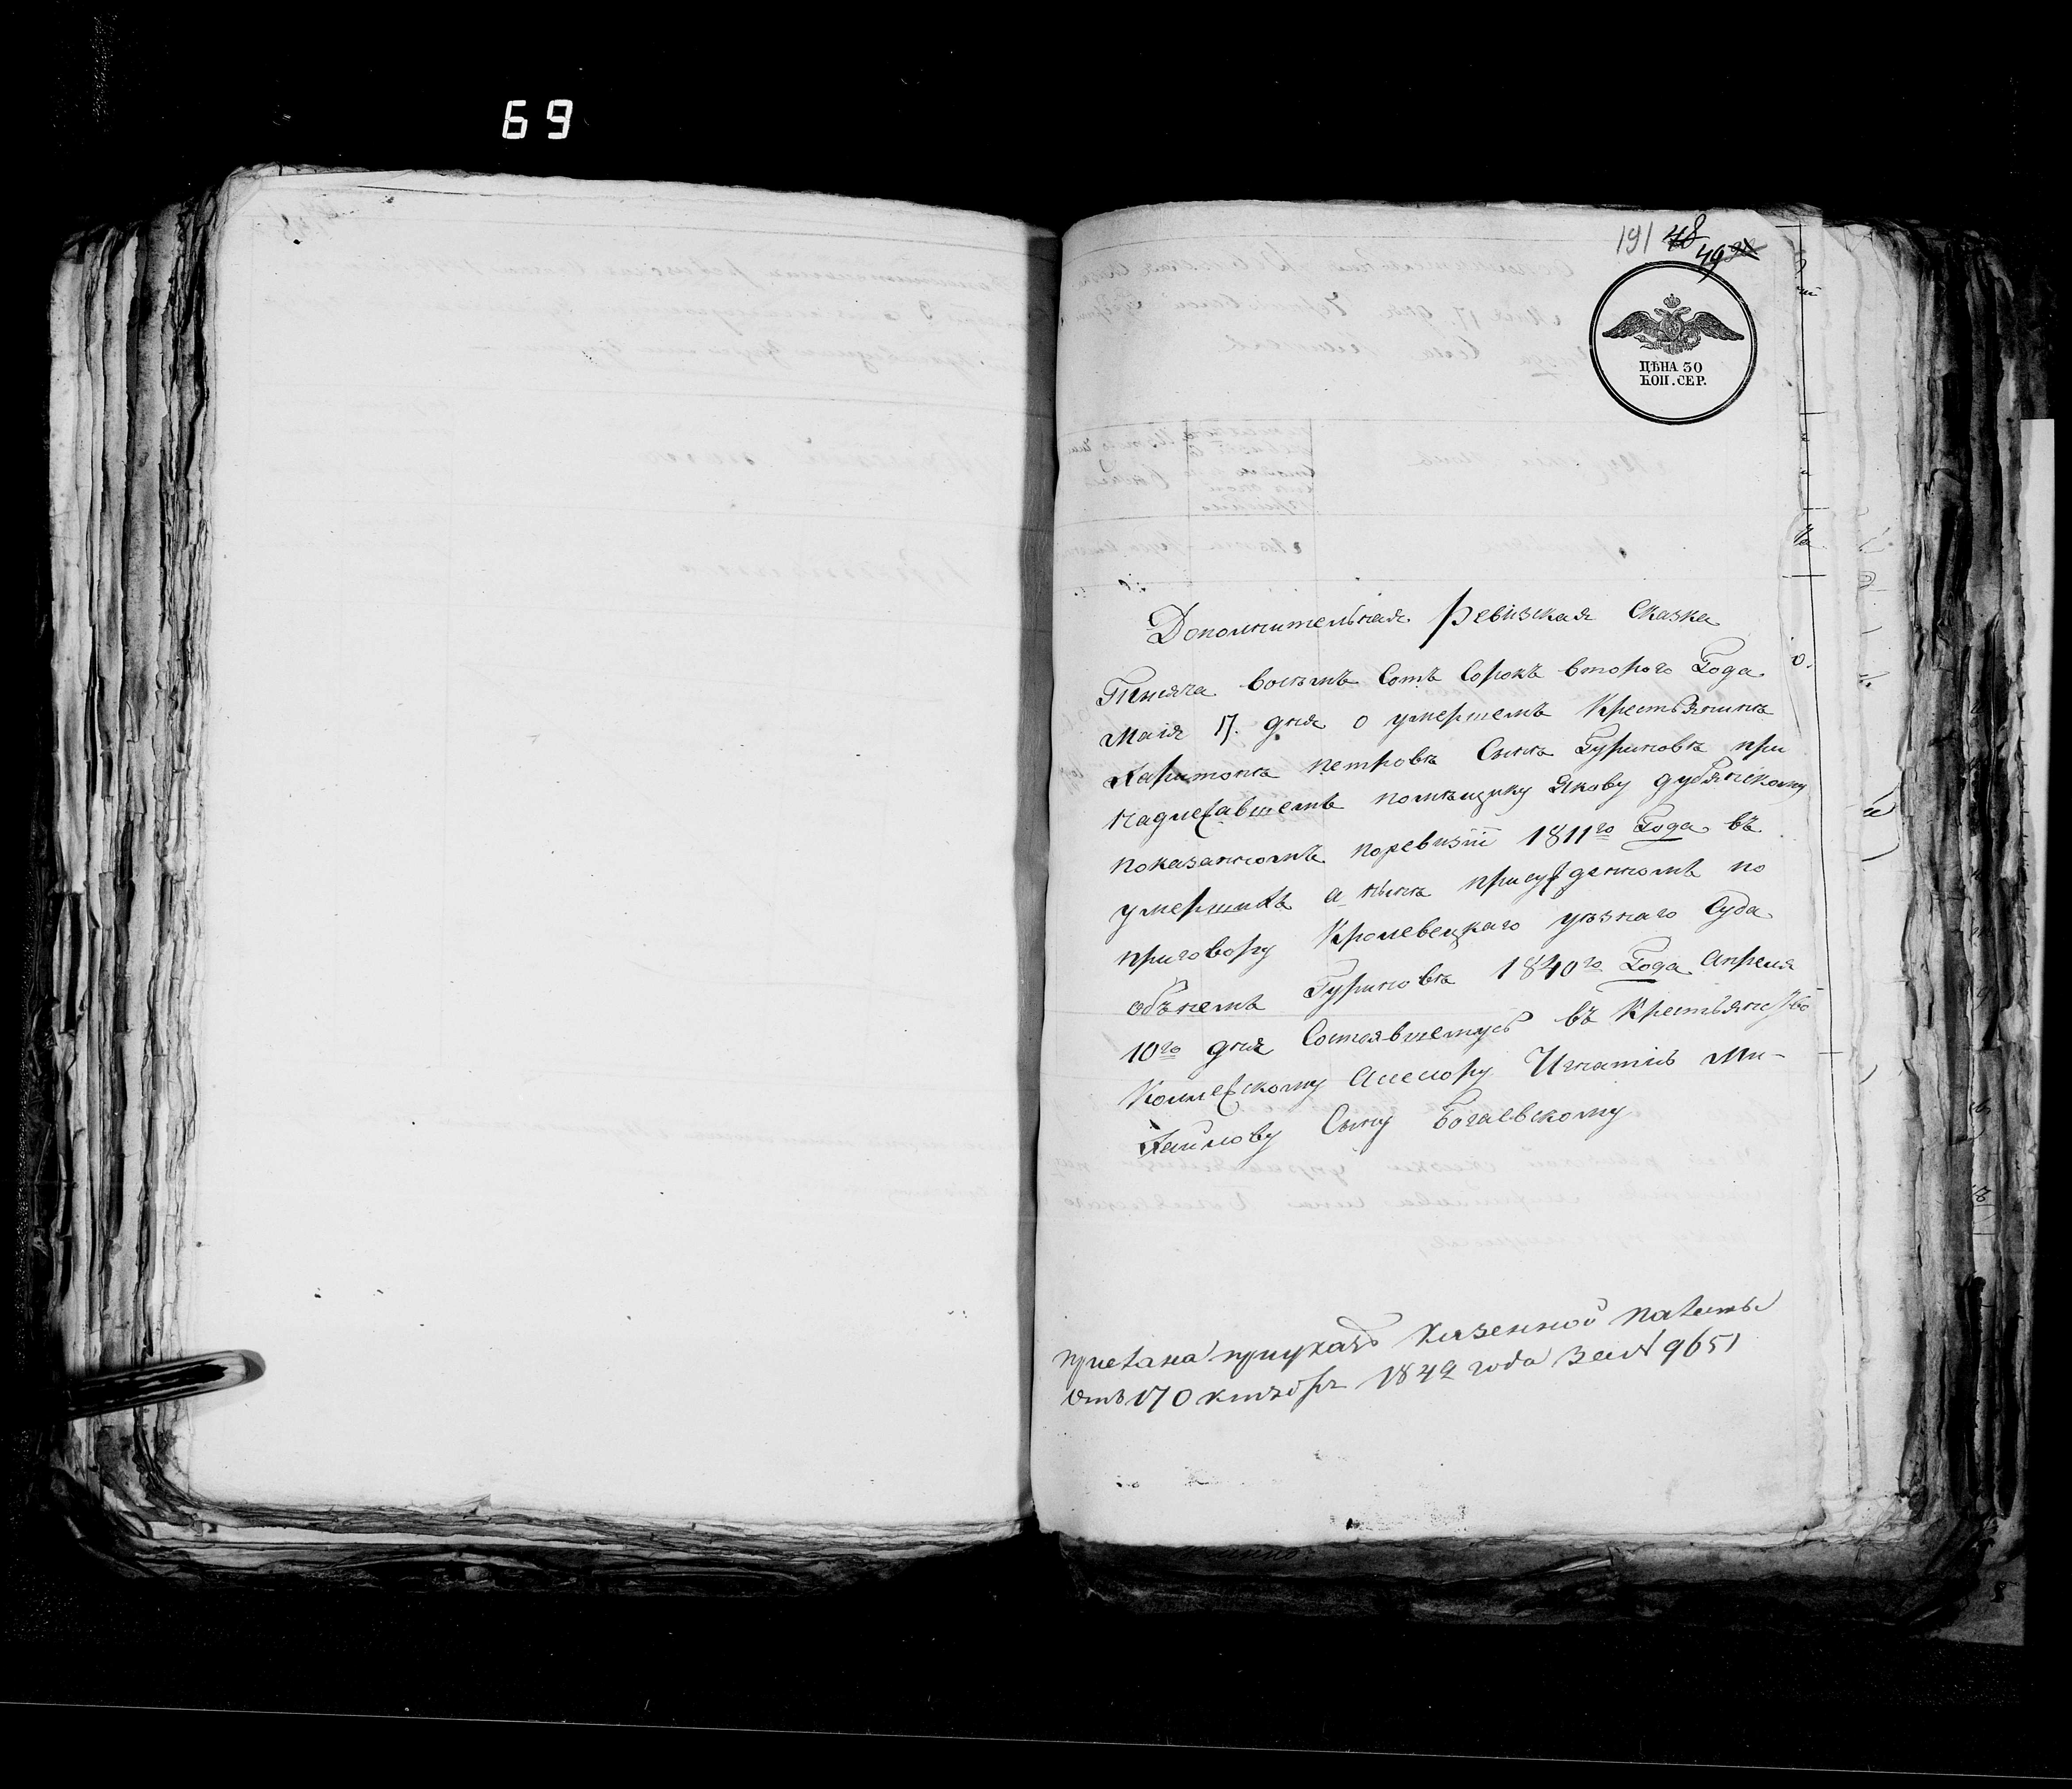 69
191 48
49
ЦѢНА 30
КОП. СЕР.
Дополнительная Ревизская Сказка
Тисяча восемъ Сотъ Сорокъ второго Года
Мая 17. дня о умершемъ Крестьянинѣ
Харитонѣ Петровѣ Сынѣ Гуриновѣ при
надлежавшемъ помѣщику Якову Дубянскому
показанномъ поревизіи 1811го Года въ
умершихъ а нынѣ присужденномъ по
приговору Кролевецкаго уѣзнаго Суда
объ немъ Гуриновѣ 1840го Года Апреля
10го дня Состоявшемусь въ Крестьянство
Колежскому Асесору Игнатію Ми-
хайлову Сыну Богаевскому
прислана приуказѣ Казенной палаты
отъ 17 Октября 1842 года за № 9651